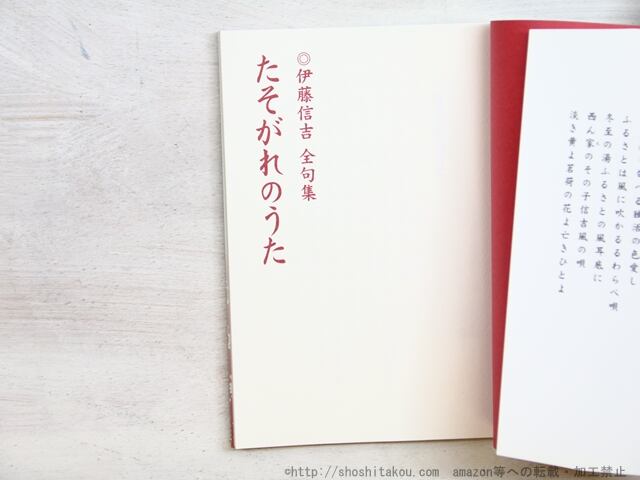 ◎伊藤信吉 全句集
たそがれのうた
る独活の色愛し
ふるさとは風に吹かるるわらべ唄
冬至の湯ふるさとの風耳底に
西ん家のその子信吉風の唄
淡き黄よ茗荷の花よ亡きひとよ
©http://shoshitakou.com amazon等への転載・加工禁止